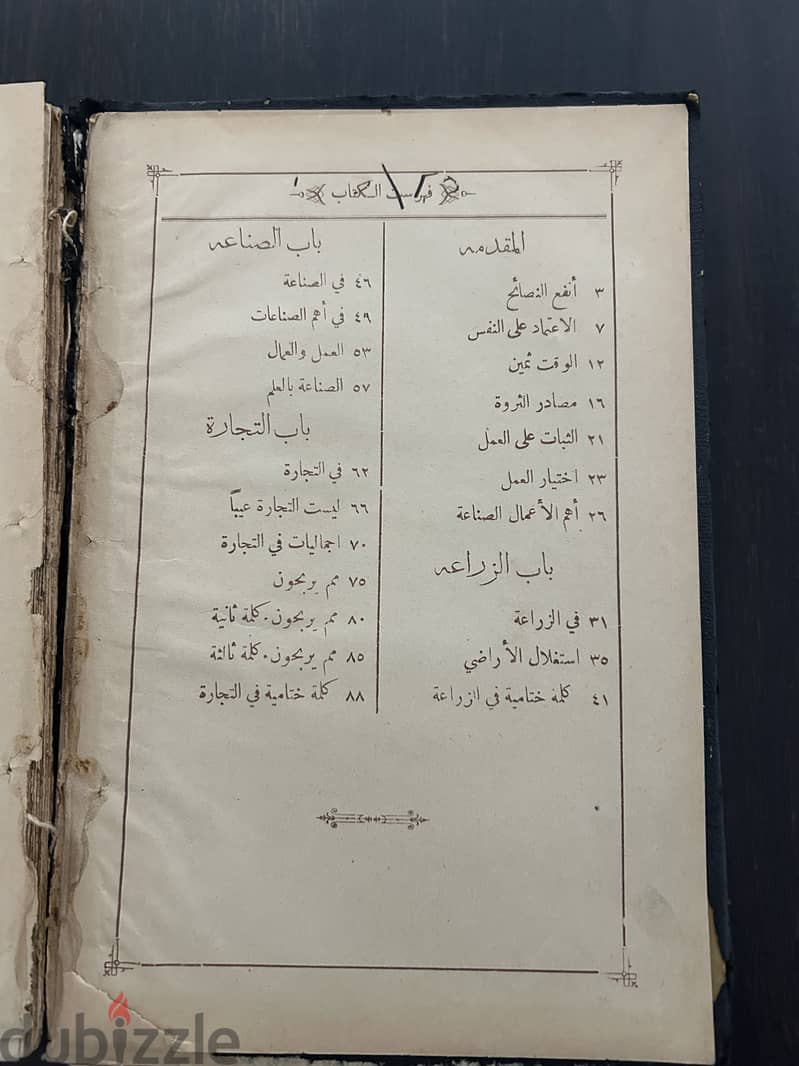 فهرست الكتاب
المقدمه
٣ أنفع النصائح
٧ الاعتماد على النفس
١٢ الوقت ثمين
١٦ مصادر الثروة
٢١ الثبات على العمل
٢٣ اختيار العمل
٢٦ أهم الأعمال الصناعة
باب الزراعه
٣١ في الزراعة
٣٥ استغلال الأراضي
٤١ كلمة ختامية في الزراعة
باب الصناعه
٤٦ في الصناعة
٤٩ في أهم الصناعات
٥٣ العمل والعمال
٥٧ الصناعة بالعلم
باب التجارة
٦٢ في التجارة
٦٦ ليست التجارة عيباً
٧٠ اجماليات في التجارة
٧٥ مم يربحون
٨٠ مم يربحون. كلمة ثانية
٨٥ مم يربحون. كلمة ثالثة
٨٨ كلمة ختامية في التجارة
dubizzle